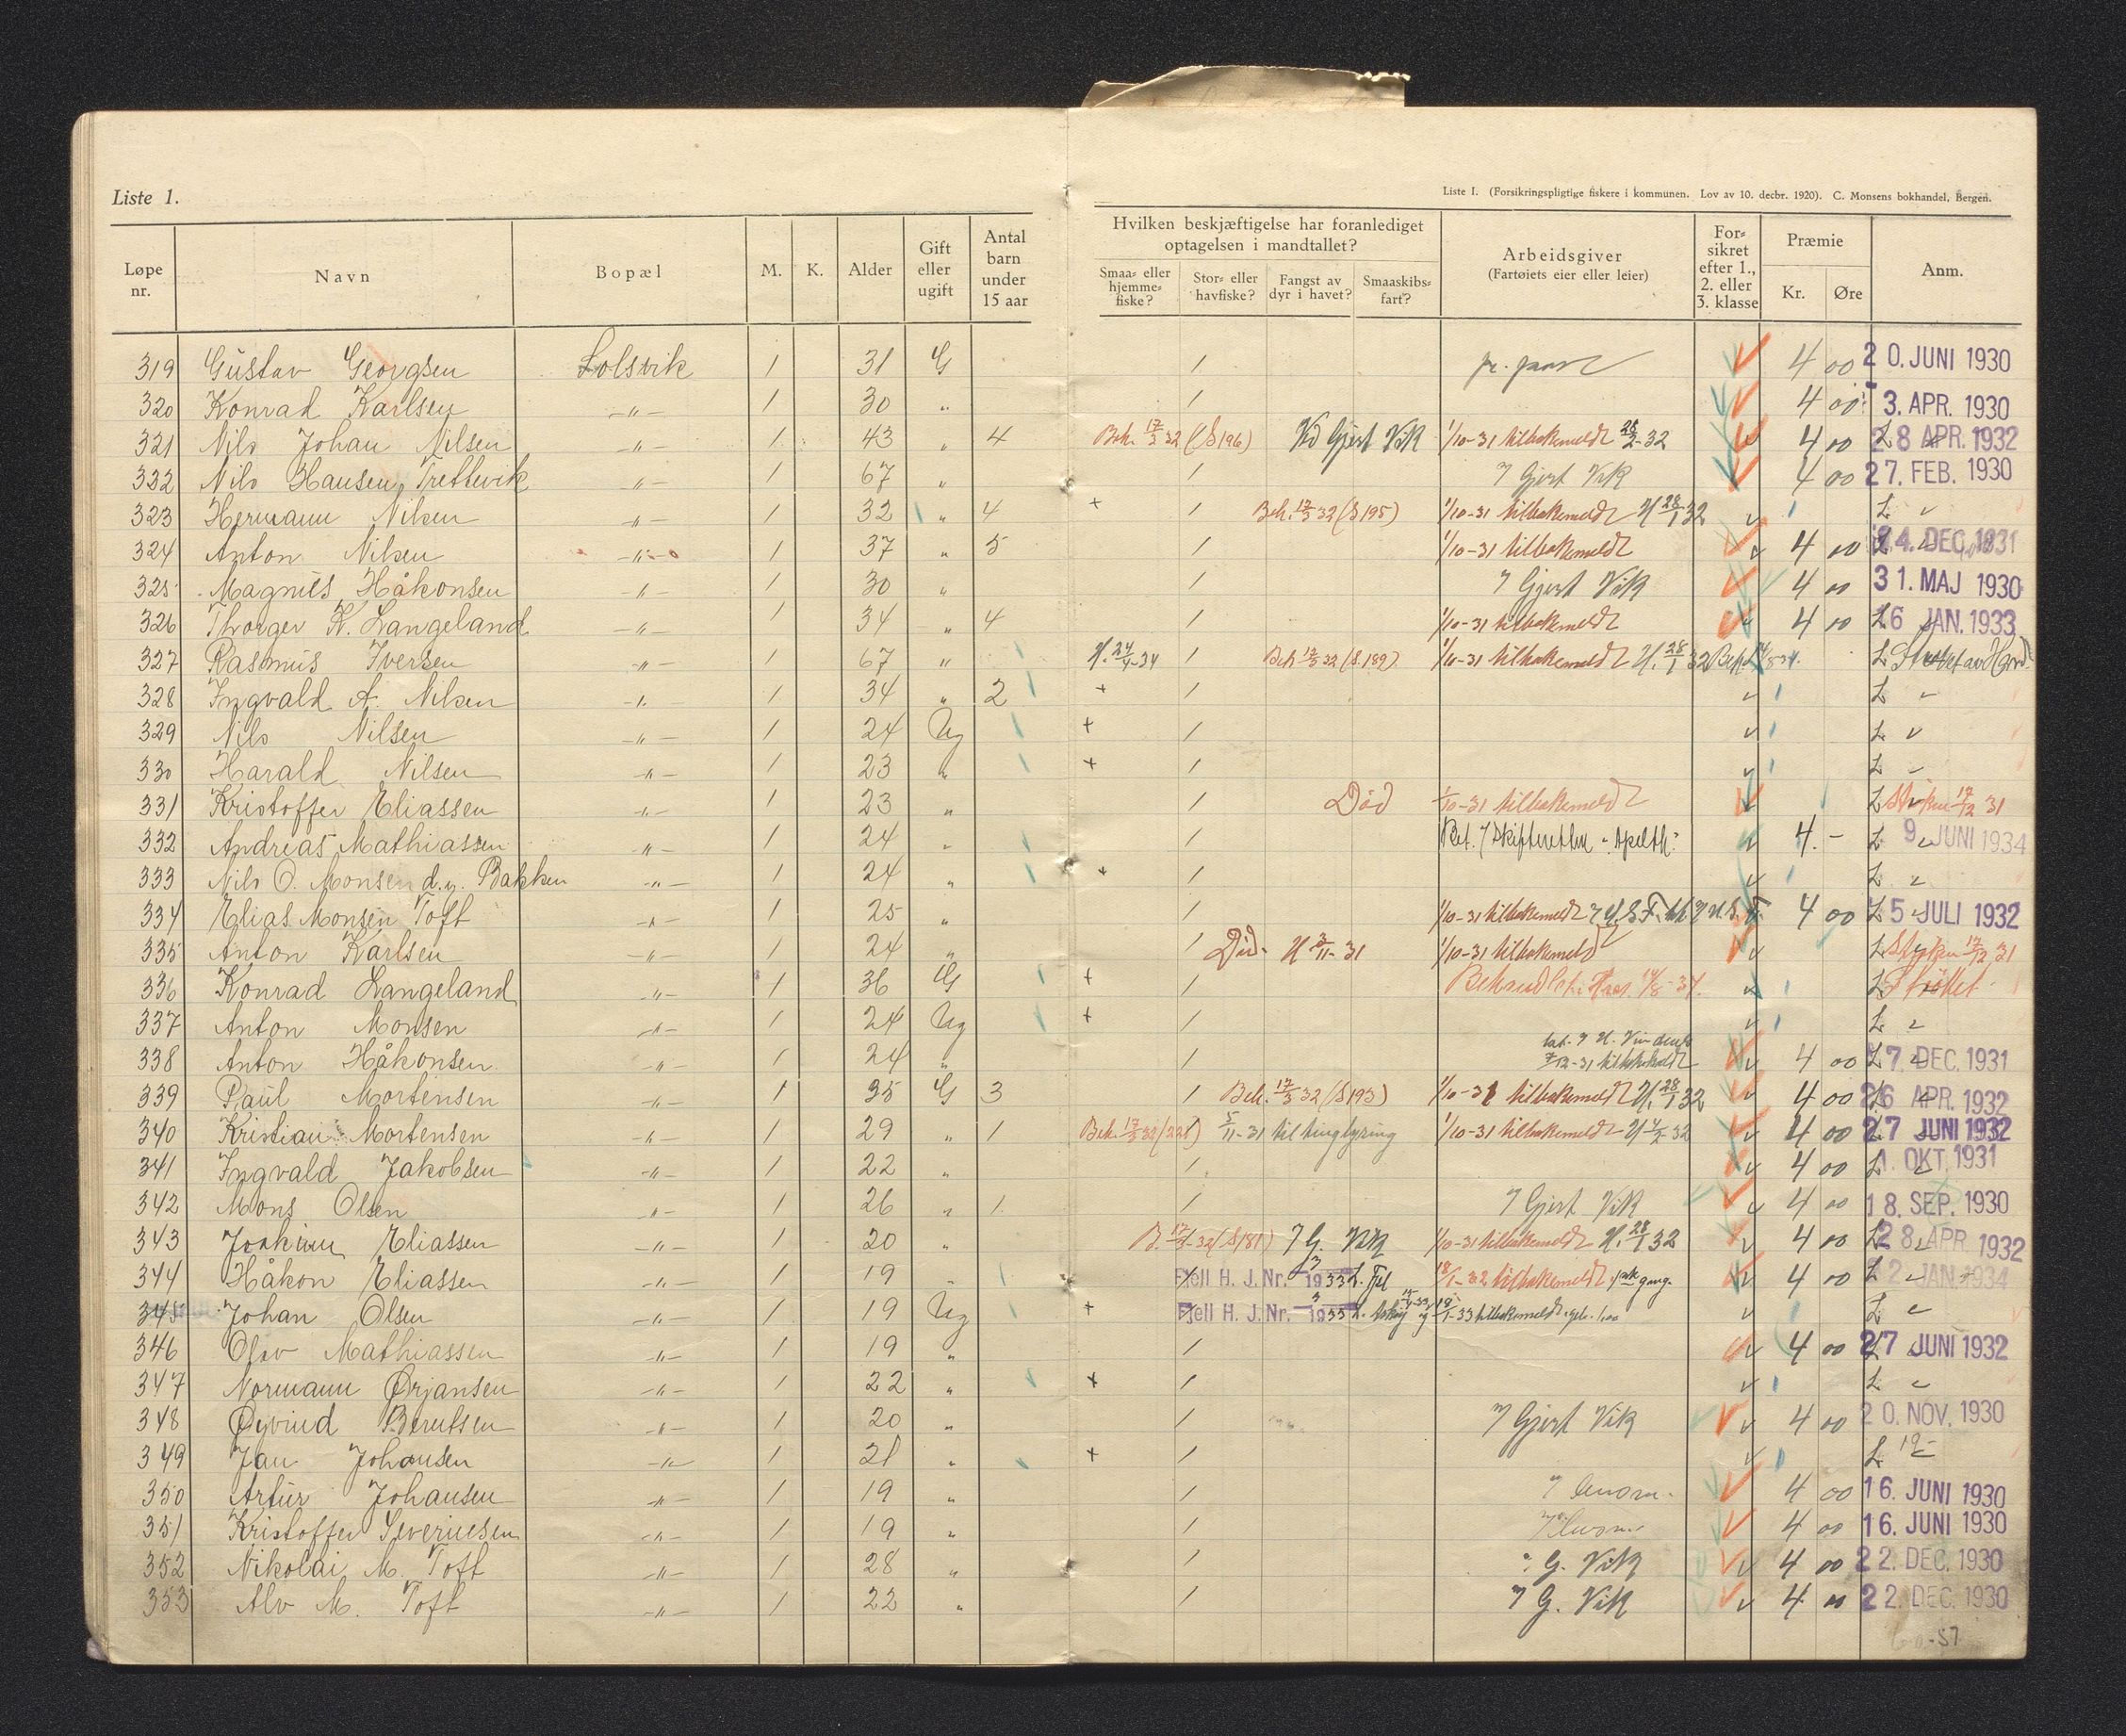 Liste 1.
Liste I. (Forsikringspligtige fiskere i kommunen. Lov av 10. decbr. 1920). C. Monsens bokhandel, Bergen.
Løpe nr. Navn Bopæl M. K. Alder Gift eller ugift Antal barn under 15 aar Hvilken beskjæftigelse har foranlediget optagelsen i mandtallet? Smaa- eller hjemmefiske? Stor- eller havfiske? Fangst av dyr i havet? Smaaskibsfart? Arbeidsgiver (Fartøiets eier eller leier) Forsikret efter 1., 2. eller 3. klasse Præmie Kr. Øre Anm.
319 Gustav Georgsen Solsvik 1 31 G 1 4 00 20. JUNI 1930
320 Konrad Karlsen -"- 1 30 " 1 4 00 3. APR. 1930
321 Nils Johan Nilsen -"- 1 43 " 4 Beh. 17/3 32 (S 196) Gjert Vik 1/10-31 tilbakemeldt 4 00 28 APR. 1932
322 Nils Hansen Trettevik -"- 1 67 " 1 Gjert Vik 4 00 27. FEB. 1930
323 Hermann Nilsen -"- 1 32 " 4 + 1 Beh. 17/3 32 (S 195) 1/10-31 tilbakemeldt H 28/1 32 L
324 Anton Nilsen -"- 1 37 " 5 1 1/10-31 tilbakemeldt 4 00 DEC 1931
325 Magnus Håkonsen -"- 1 30 " 1 Gjert Vik 4 00 31. MAJ 1930
326 Thorger K. Langeland -"- 1 34 " 4 1 1/10-31 tilbakemeldt 4 00 L 6 JAN. 1933
327 Rasmus Iversen -"- 1 67 " 1 Beh 17/3 32 (S. 189) 1/10-31 tilbakemeldt H. 28/1 32 L
328 Ingvald A. Nilsen -"- 1 34 " 2 + 1 L
329 Nils Nilsen -"- 1 24 Ug + 1 L
330 Harald Nilsen -"- 1 23 " + 1 L
331 Kristoffer Eliassen -"- 1 23 " 1 Död 1/10-31 tilbakemeldt L 17/12 31
332 Andreas Mathiassen -"- 1 24 " 1 4. - L 9 JUNI 1934
333 Nils O. Monsen d.y. Bakken -"- 1 24 " + 1 L
334 Elias Monsen Toft -"- 1 25 " 1 1/10-31 tilbakemeldt 4 00 L 5 JULI 1932
335 Anton Karlsen -"- 1 24 " 1 Död H 3/11-31 1/10-31 tilbakemeldt L 17/12 31
336 Konrad Langeland -"- 1 36 G + 1 L Strøket
337 Anton Monsen -"- 1 24 Ug + 1 L
338 Anton Håkonsen -"- 1 24 " 1 tilbakemeldt 4 00 L 7. DEC 1931
339 Paul Mortensen -"- 1 35 G 3 1 Beh. 17/3 32 (S 193) 1/10-31 tilbakemeldt H. 28/1 32 4 00 26 APR. 1932
340 Kristian Mortensen -"- 1 29 " 1 Beh. 17/3 32 5/11-31 til tinglysing 1/10-31 tilbakemeldt 4 00 27 JUNI 1932
341 Ingvald Jakobsen -"- 1 22 " 1 4 00 L 1. OKT. 1931
342 Mons Olsen -"- 1 26 " 1 1 Gjert Vik 4 00 18. SEP. 1930
343 Joakim Eliassen -"- 1 20 " (S 181) G. Vik 1/10-31 tilbakemeldt H. 28/1 32 4 00 28. APR. 1932
344 Håkon Eliassen -"- 1 19 " Fjell H. J. Nr. 1933 18/1-32 tilbakemeldt gang. 4 00 L 2 JAN. 1934
345 Johan Olsen -"- 1 19 Ug + Fjell H. J. Nr. 1933 18/1-33 tilbakemeldt L
346 Olav Mathiassen -"- 1 19 " 1 4 00 27 JUNI 1932
347 Normann Ørjansen -"- 1 22 " + 1 L
348 Øyvind Berntsen -"- 1 20 " 1 Gjert Vik 4 00 20. NOV. 1930
349 Jan Johansen -"- 1 21 " + 1 L
350 Artur Johansen -"- 1 19 " 1 4 00 16. JUNI 1930
351 Kristoffer Severinsen -"- 1 19 " 1 4 00 16. JUNI 1930
352 Nikolai M. Toft -"- 1 28 " 1 G. Vik 4 00 22. DEC. 1930
353 Alv M. Toft -"- 1 22 " 1 G. Vik 4 00 22. DEC. 1930